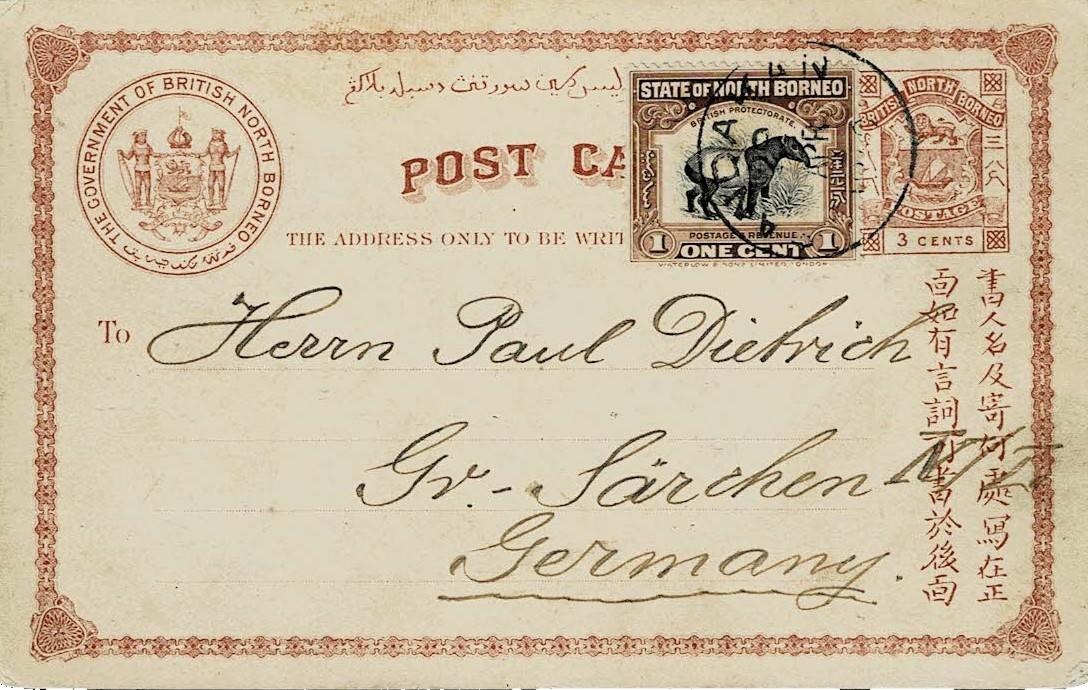 THE GOVERNMENT OF BRITISH NORTH BORNEO
POST CA
THE ADDRESS ONLY TO BE WRIT
STATE OF NORTH BORNEO
BRITISH PROTECTORATE
POSTAGE & REVENUE
1 ONE CENT 1
WATERLOW & SONS LIMITED, LONDON
BRITISH NORTH BORNEO
POSTAGE
3 CENTS
To Herrn Paul Dietrich
Gr.-Särchen N/L
Germany.
書人名及寄何處寫在正
面如有言詞可書於後面